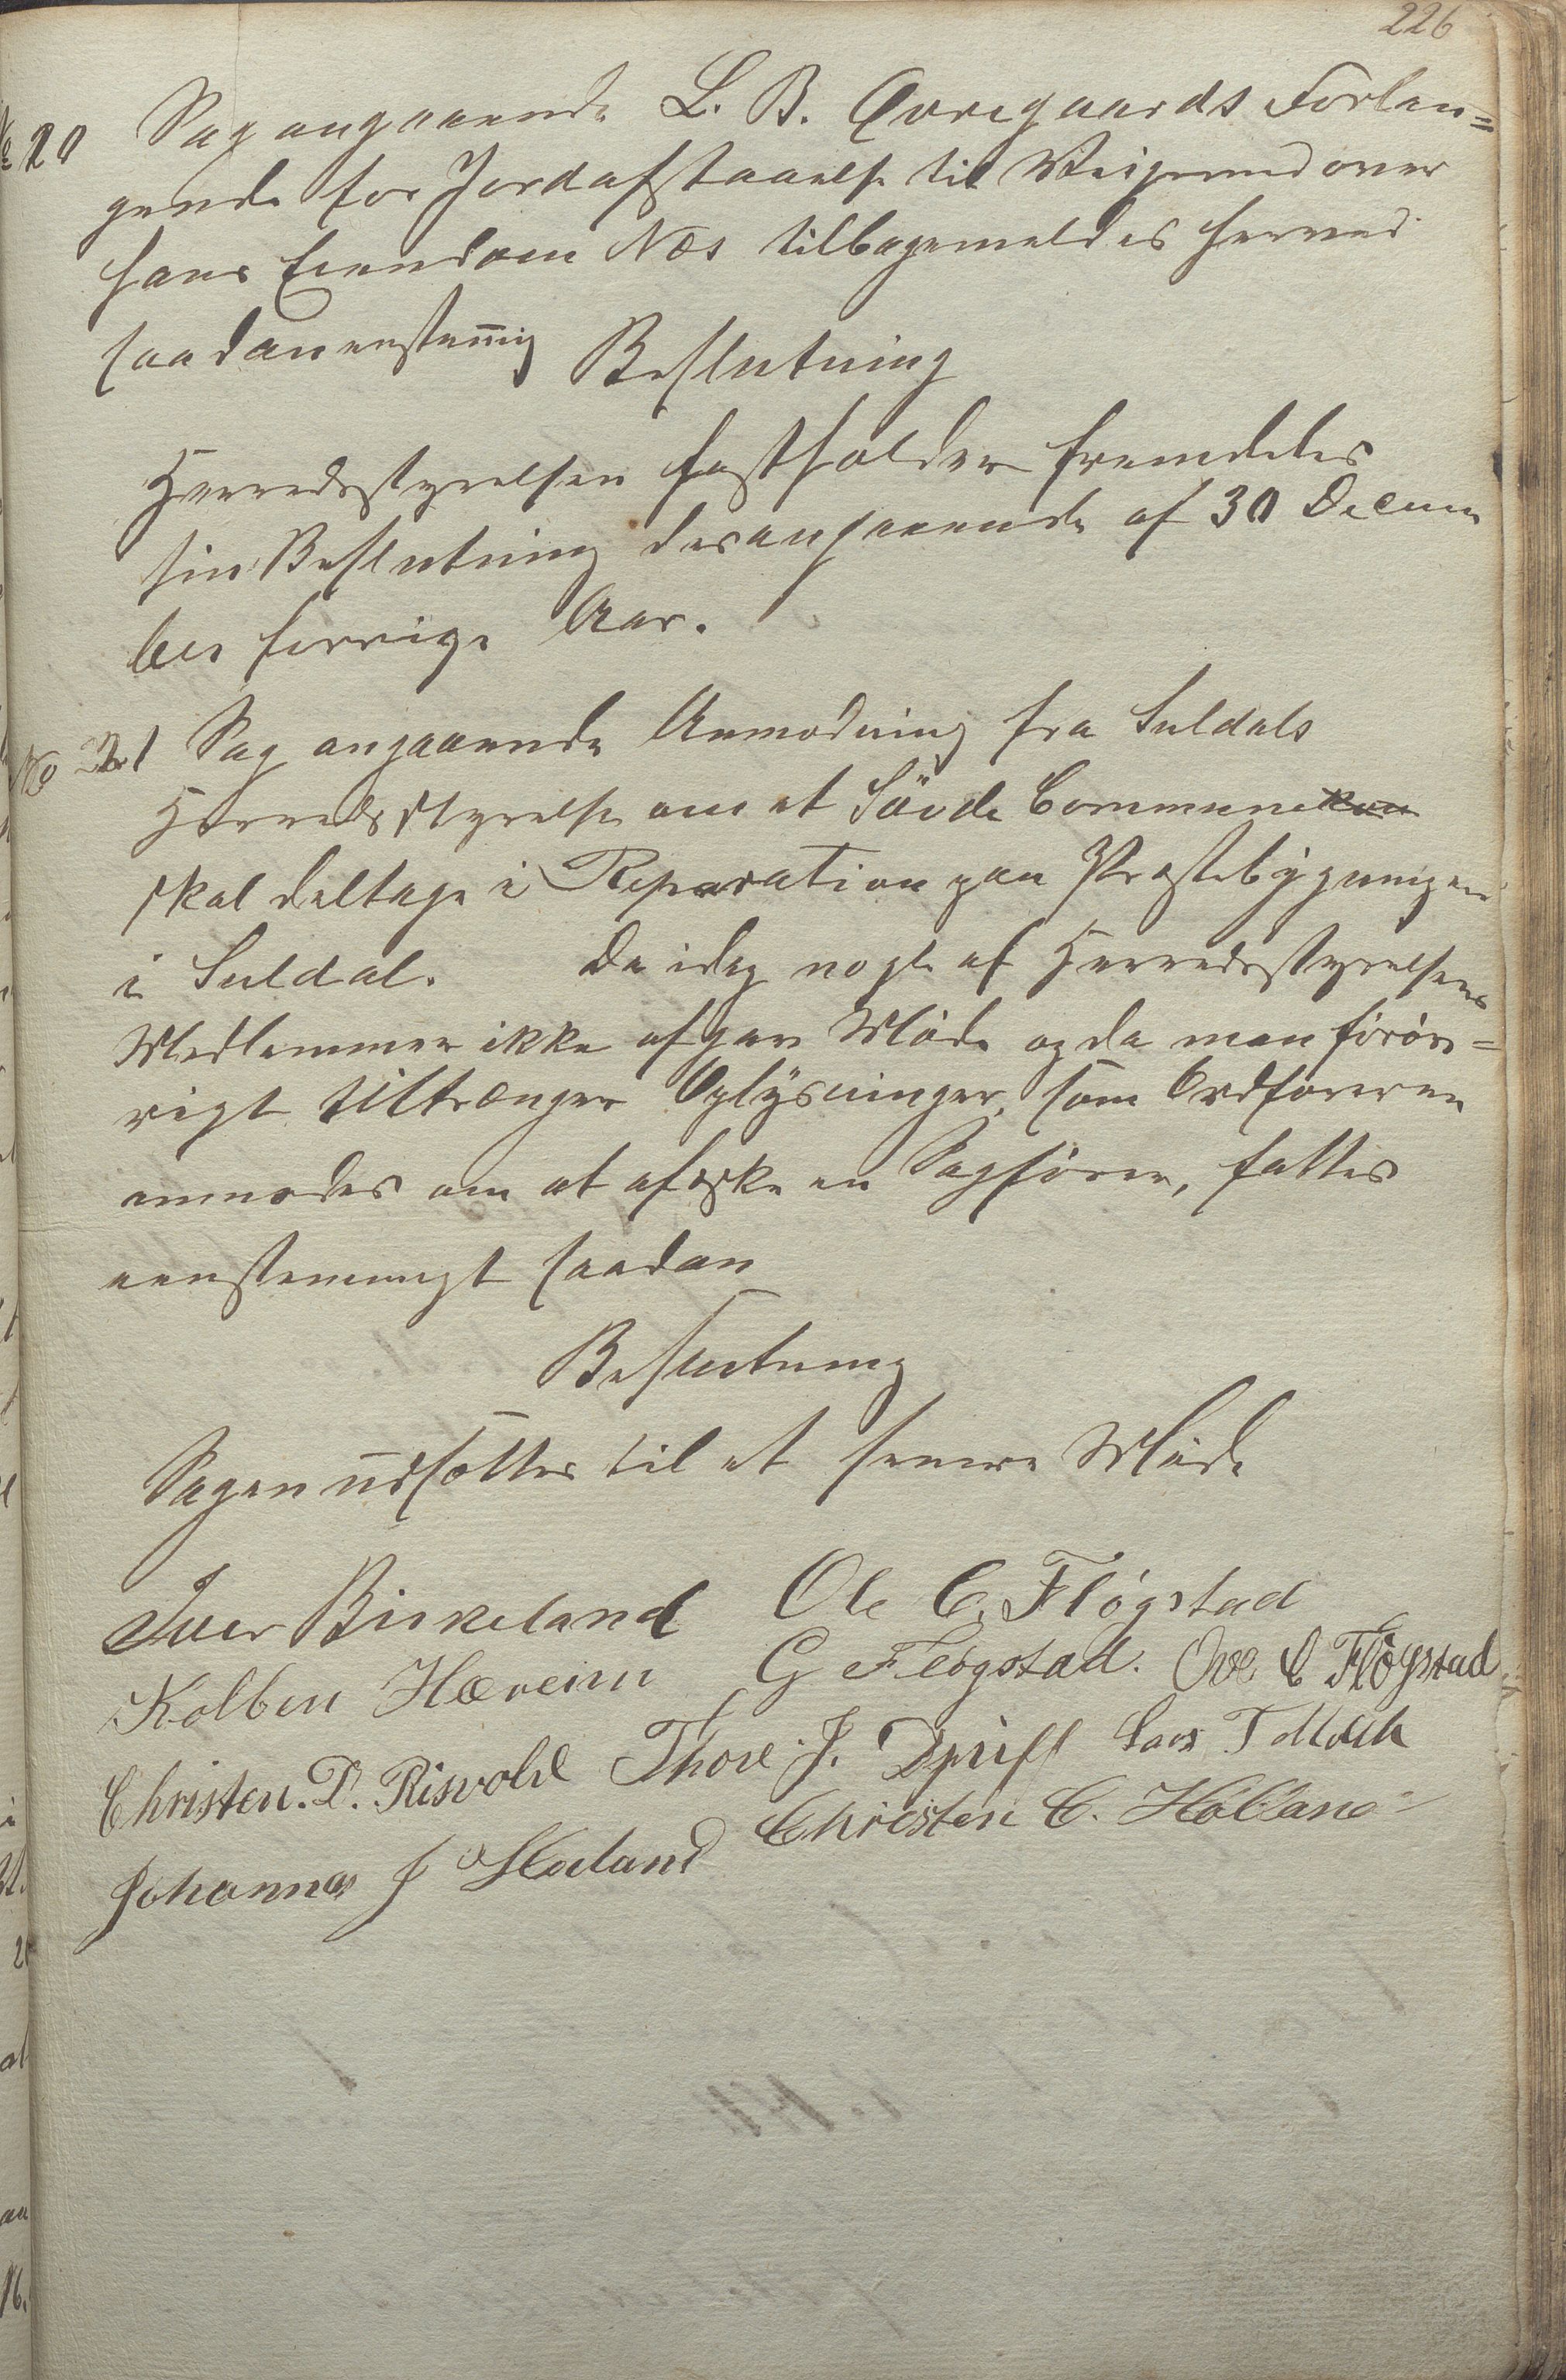 226
No 20 Sag angaaende L. B. Qvregaards Forlan=
gende for Jordafstaaelse til Veigrund over
hans Eiendom Næs tilbagemeldes herved
saadan enstemig Beslutning
Herredsstyrelsen fastholder fremdeles
sin Beslutning desangaaende af 30 Decem
ber forrige Aar.
No 21 Sag angaaende Anmodning fra Suldals
Herredsstyrelse om at Søvde Commune
skal deltage i Reparation paa Præstebygningen
i Suldal. Da idag nogle af Herredsstyrelsens
Medlemmer ikke afgav Møde og da man forøv=
rigt tiltrænger Oplysninger, som Ordføreren
anmodes om at afæske en Sagfører, fattes
eenstemmigt saadan
Beslutning
Sagen udsættes til et senere Møde
Iver Birkeland Ole C. Fløgstad
Kolben Hæreim G Fløgstad. Ove C Fløgstad
Christen. D. Risvold Thore J. Lars T
Johannes J Christen C. Hølland